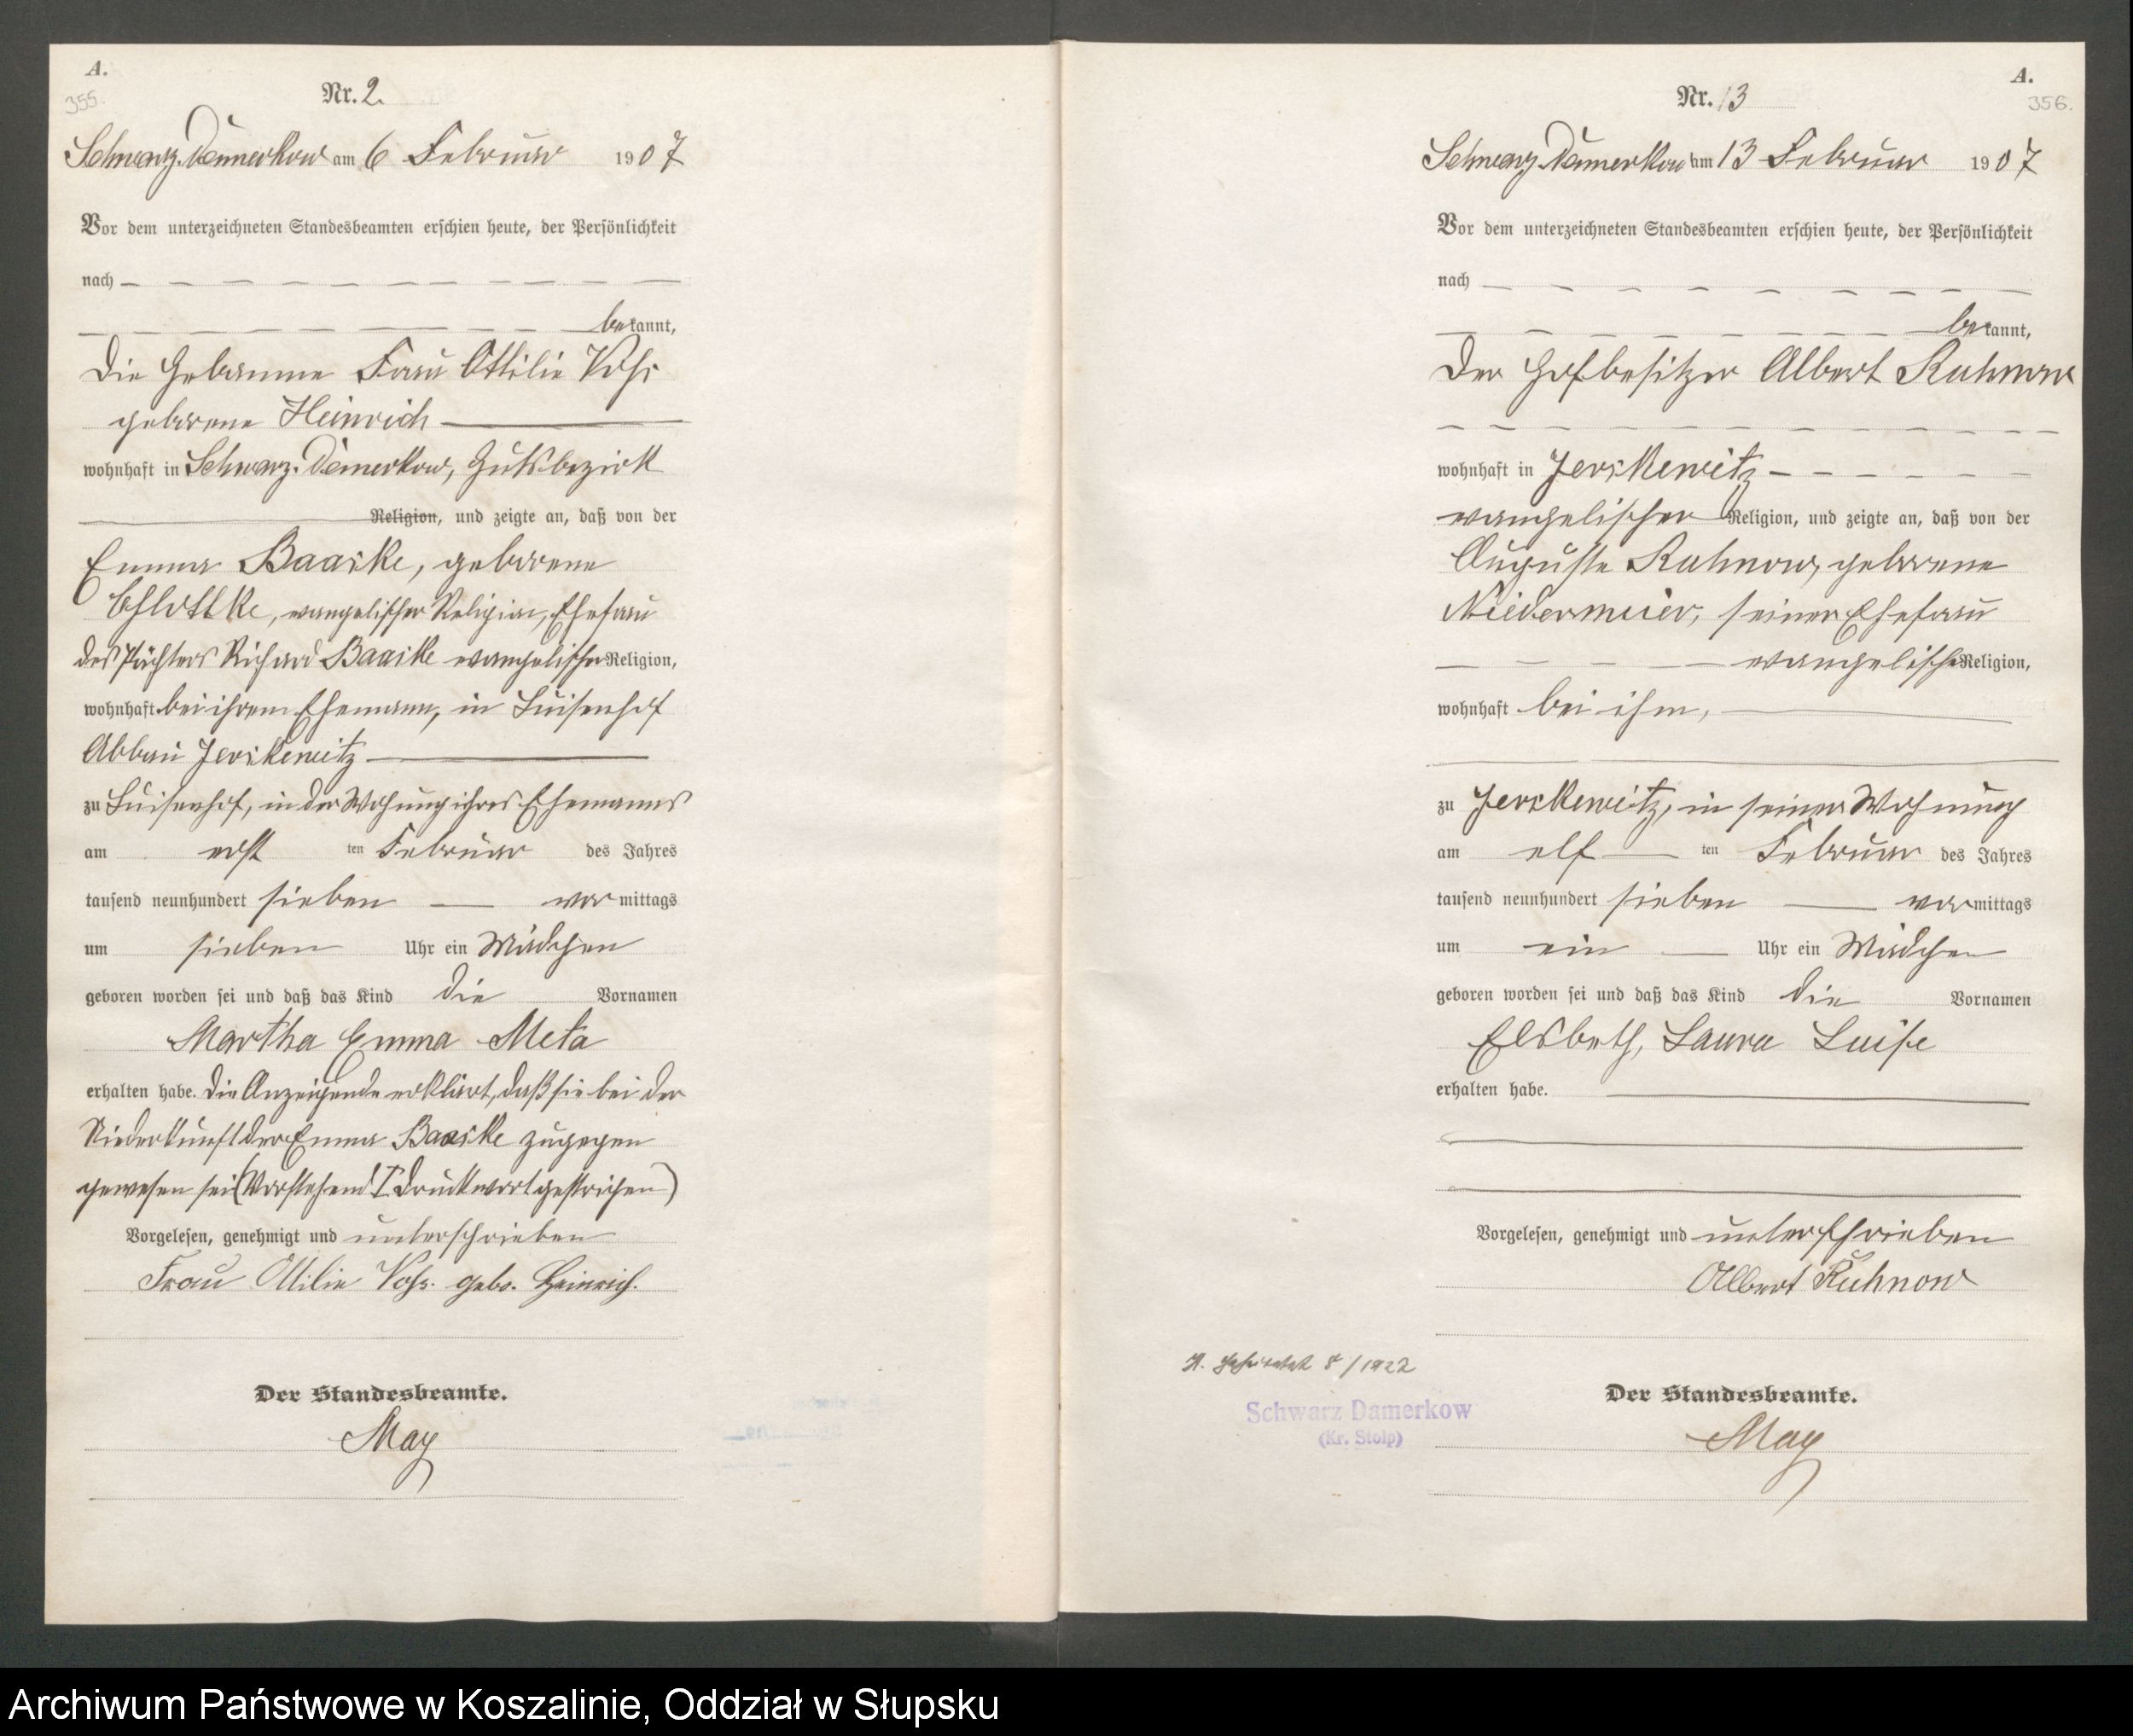 A.
355.
Nr. 2.
Schwarz-Damerkow am 6 Februar 1907
Vor dem unterzeichneten Standesbeamten erschien heute, der Persönlichkeit
nach
bekannt,
die Hebamme Frau Ottilie Vohs
geborene Heinrich
wohnhaft in Schwarz-Damerkow, Gutsbezirk
Religion, und zeigte an, daß von der
Emma Baaske, geborene
evangelischer Religion, Ehefrau
des Pächters Richard Baaske evangelischer Religion,
wohnhaft bei ihrem Ehemann, in Luisenhof
Abbau Jerskewitz
zu Luisenhof, in der Wohnung ihres Ehemanns
am erst ten Februar des Jahres
tausend neunhundert sieben vormittags
um sieben Uhr ein Mädchen
geboren worden sei und daß das Kind die Vornamen
Martha Emma Meta
erhalten habe. Die Anzeigende erklärt, daß sie bei der
Niederkunft der Emma Baaske zugegen
gewesen sei (Vorstehend 1 Druckwort gestrichen)
Vorgelesen, genehmigt und unterschrieben
Frau Ottilie Vohs geb. Heinrich.
Der Standesbeamte.
May
A.
356.
Nr. 13
Schwarz-Damerkow am 13 Februar 1907
Vor dem unterzeichneten Standesbeamten erschien heute, der Persönlichkeit
nach
bekannt,
der Hofbesitzer Albert Kuhnow
wohnhaft in Jerskewitz
evangelischer Religion, und zeigte an, daß von der
Auguste Kuhnow, geborene
Niedermeier, seiner Ehefrau
evangelischer Religion,
wohnhaft bei ihm,
zu Jerskewitz, in seiner Wohnung
am elf ten Februar des Jahres
tausend neunhundert sieben vormittags
um ein Uhr ein Mädchen
geboren worden sei und daß das Kind die Vornamen
Elsbeth, Laura Luise
erhalten habe.
Vorgelesen, genehmigt und unterschrieben
Albert Kuhnow
8/1922
Schwarz Damerkow
(Kr. Stolp)
Der Standesbeamte.
May
Archiwum Państwowe w Koszalinie, Oddział w Słupsku